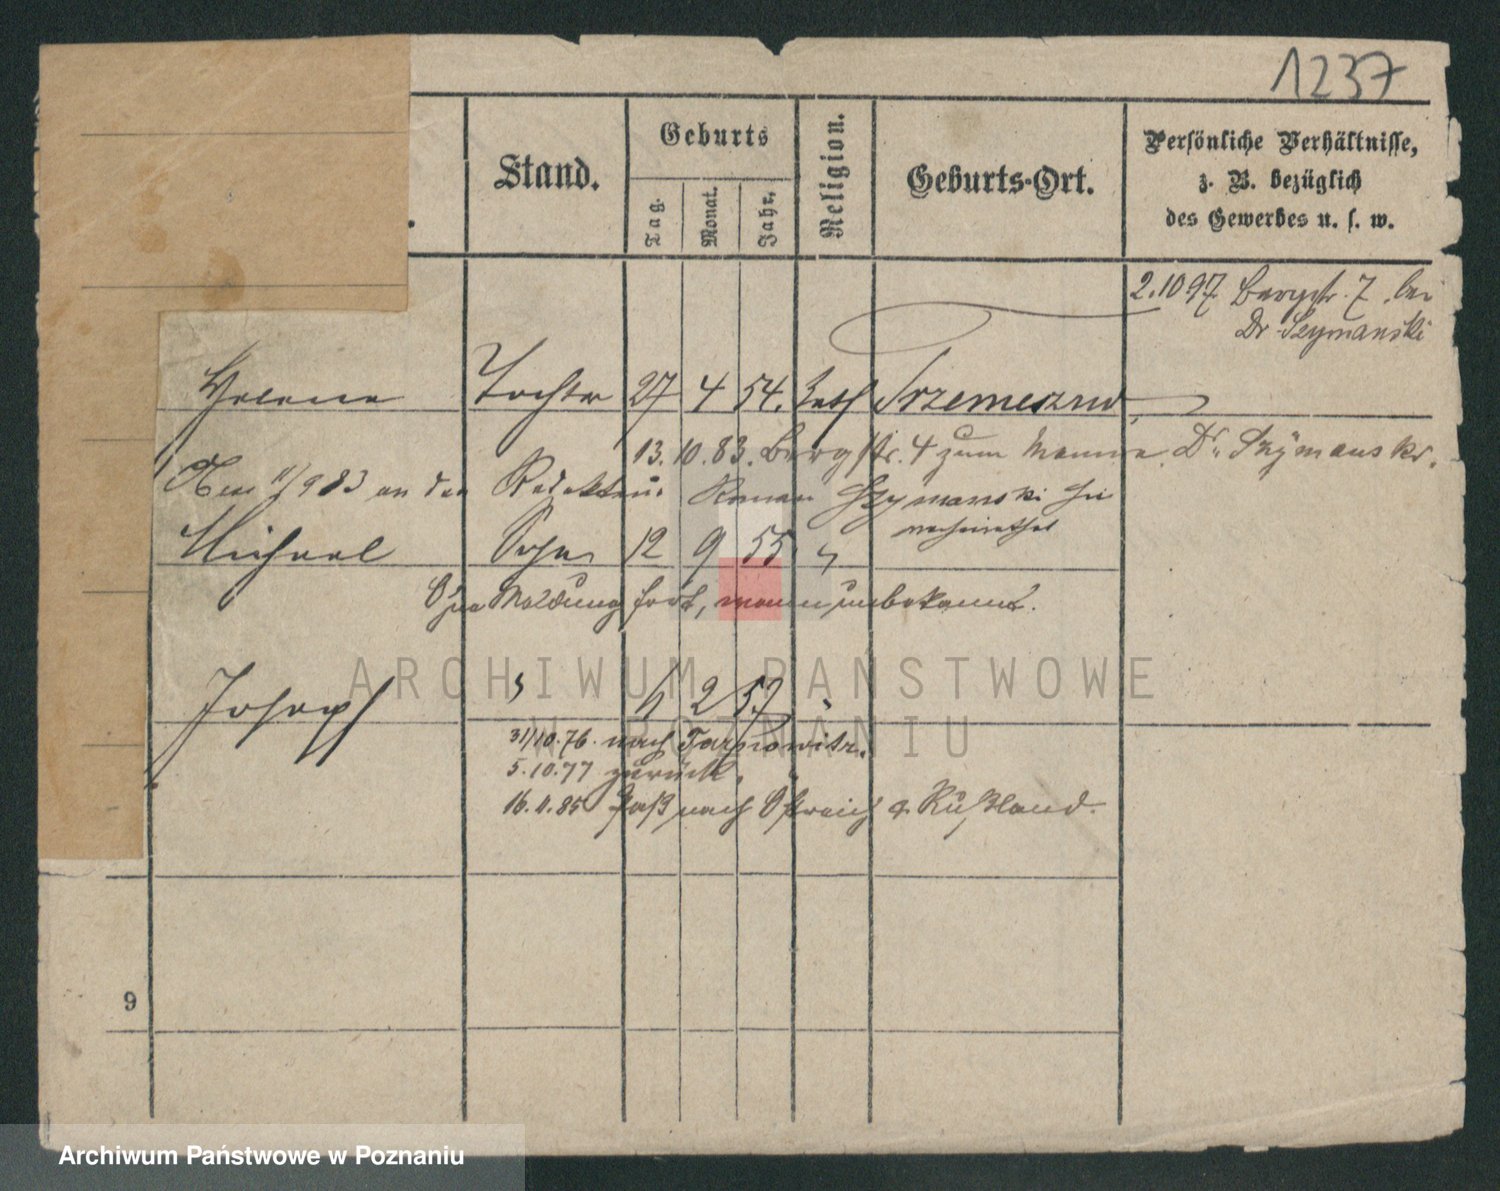 1237
Stand.
Geburts
Tag.
Monat.
Jahr.
Religion.
Geburts-Ort.
Persönliche Verhältnisse,
z. B. bezüglich
des Gewerbes u. s. w.
2.10 97 Bergstr. 7 bei
Dr Szymanski
Helene Tochter 27 4 54. kath Trzemeszno
13.10.83. Bergstr. 4 zum Manne Dr. Szymanski.
11/9 83 an den Redakteur Roman Szymanski
verheirathet
Michael Sohn 12 9 55 "
Ohne Meldung fort, wann unbekannt.
Joseph " 6 2 57 "
31/10.76. nach Tarnowitz.
5.10.77 zurück.
16.11.85 Paß nach Östreich & Rußland.
9
ARCHIWUM PAŃSTWOWE
W POZNANIU
Archiwum Państwowe w Poznaniu